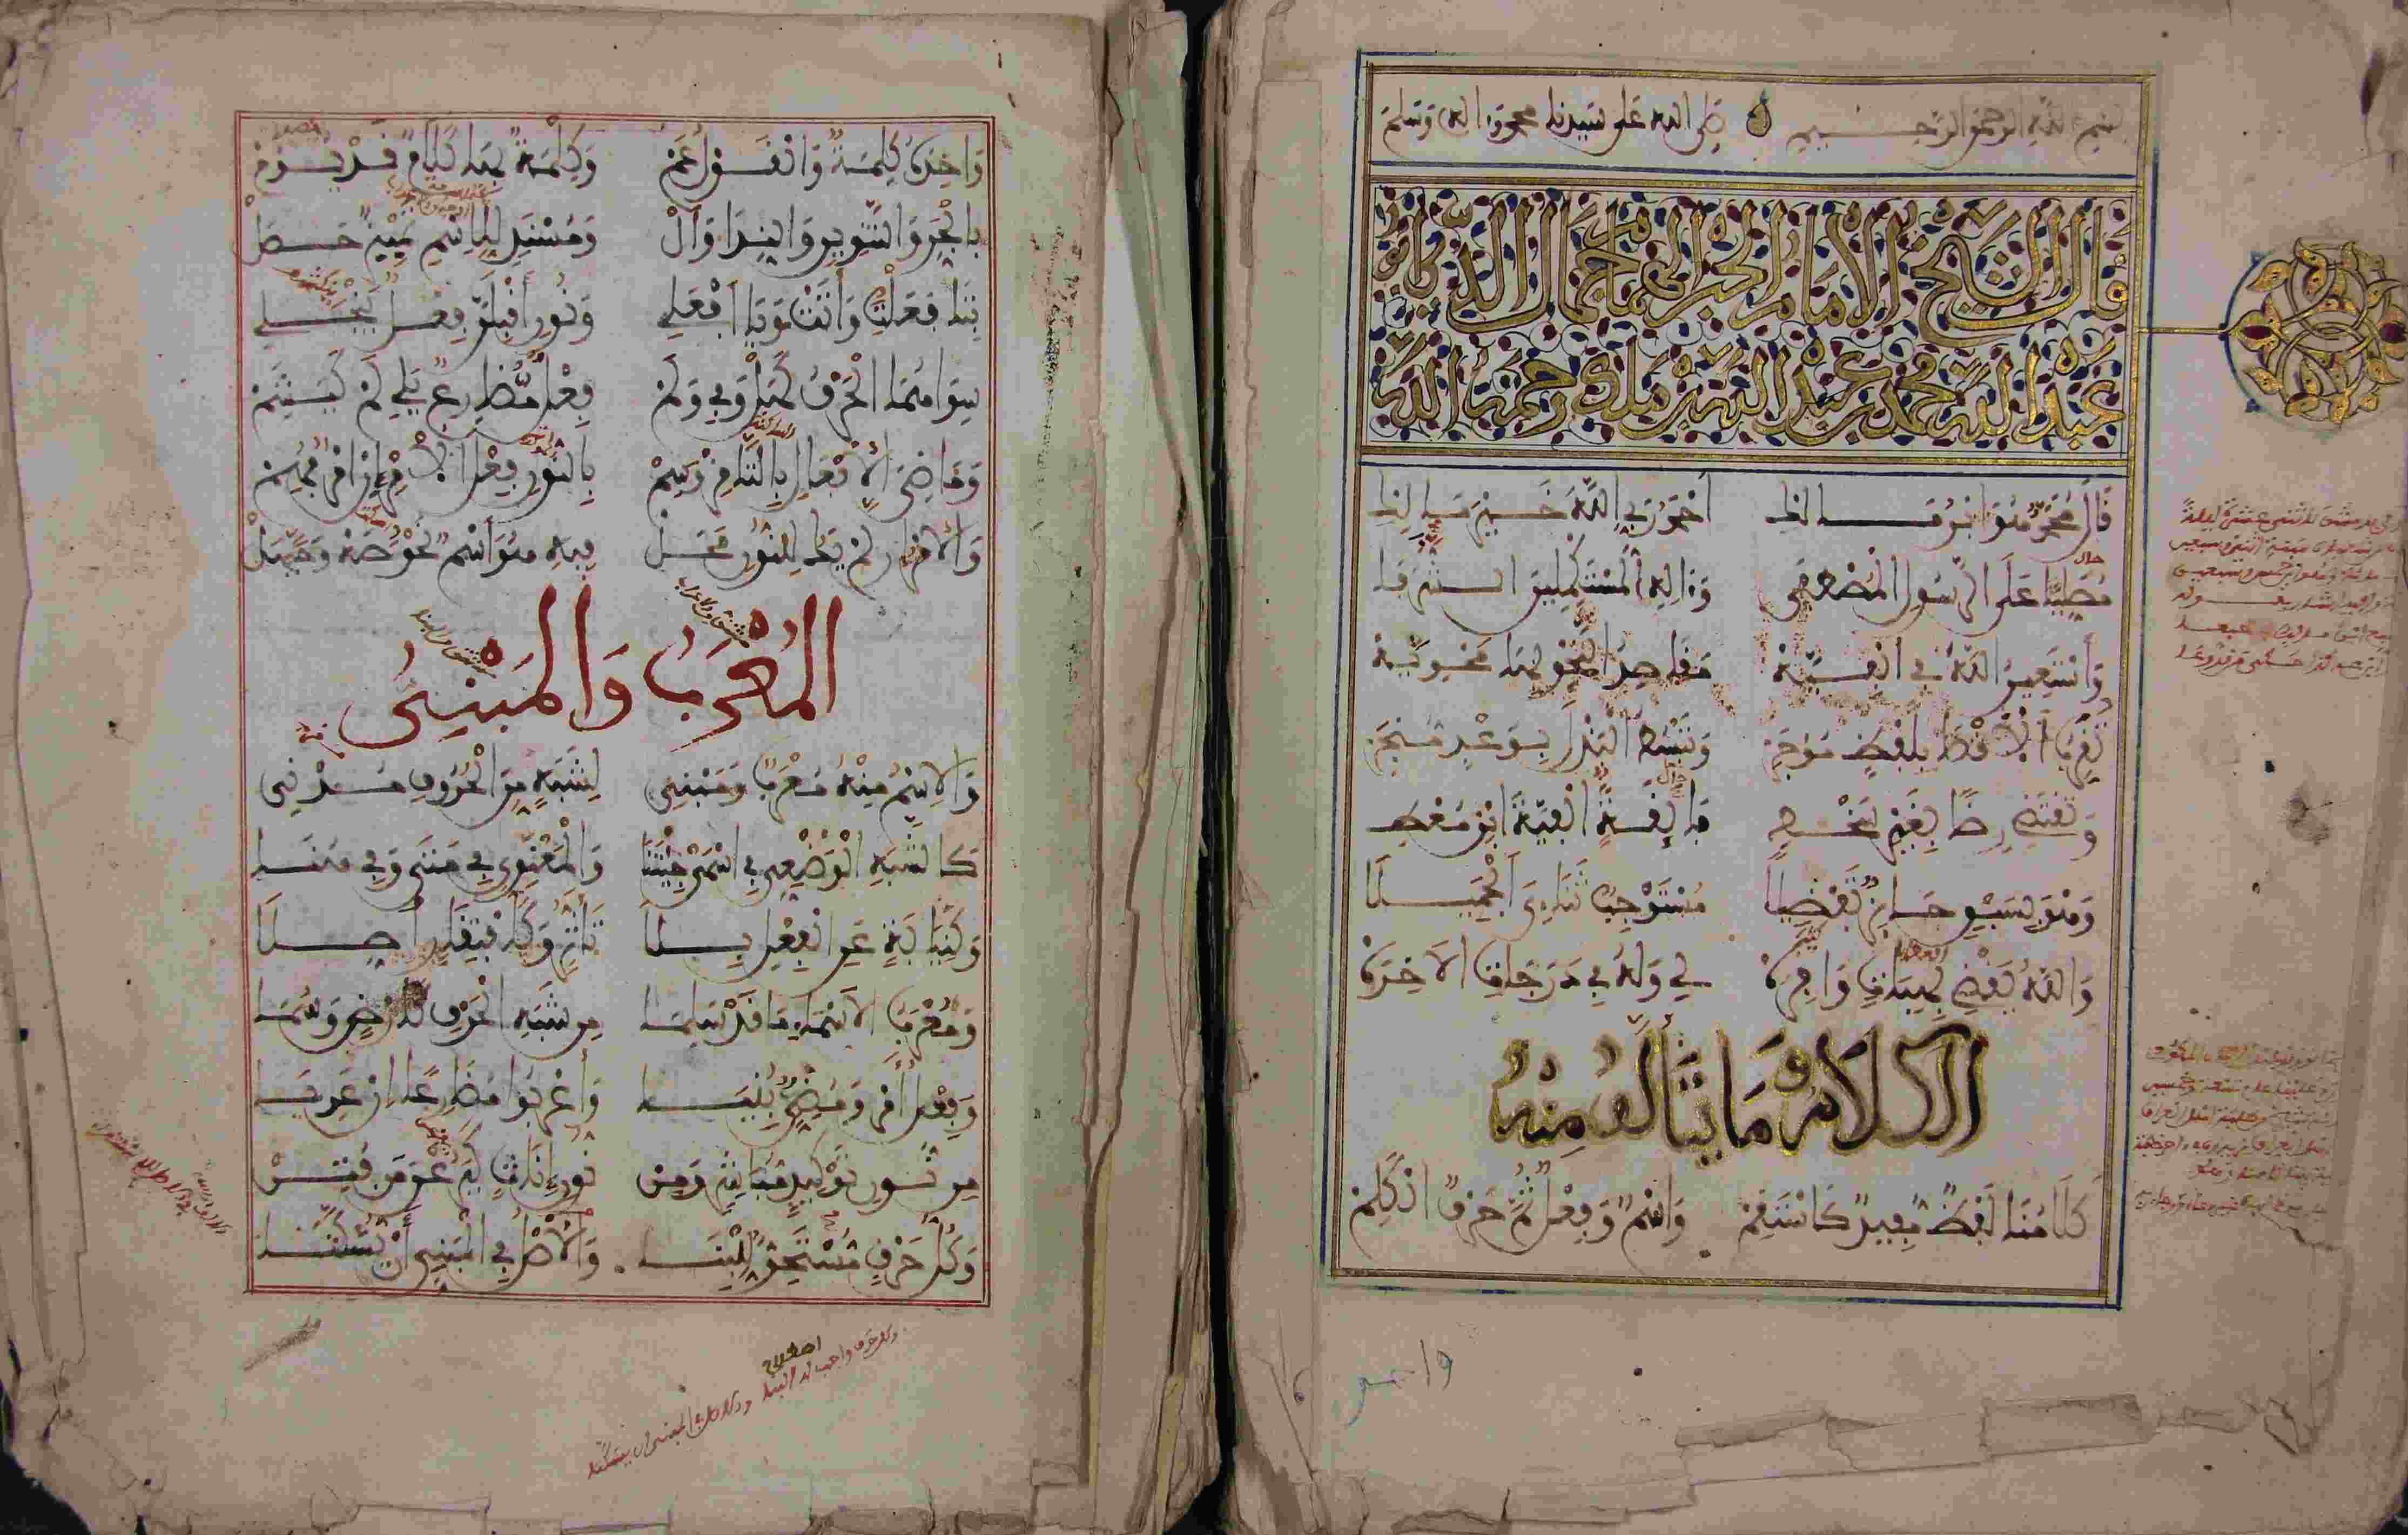 بسم الله الرحمن الرحيم صلى الله على سيدنا محمد وآله وسلم
قال الشيخ الامام الحبر الهمام جمال الدين ابو
عبد الله محمد بن عبد الله بن مالك رحمه الله
قَالَ مُحَمَّدٌ هُوَ ابْنُ مَالِكِ أَحْمَدُ رَبِّي اللهَ خَيْرَ مَالِكِ
مُصَلِّيًا عَلَى الرَّسُولِ الْمُصْطَفَى وَآلِهِ الْمُسْتَكْمِلِينَ الشَّرَفَا
وَأَسْتَعِينُ اللهَ فِي أَلْفِيَّهْ مَقَاصِدُ النَّحْوِ بِهَا مَحْوِيَّهْ
تُقَرِّبُ الْأَقْصَى بِلَفْظٍ مُوجَزِ وَتَبْسُطُ الْبَذْلَ بِوَعْدٍ مُنْجَزِ
وَتَقْتَضِي رِضًا بِغَيْرِ سُخْطِ فَائِقَةً أَلْفِيَّةَ ابْنِ مُعْطِ
وَهْوَ بِسَبْقٍ حَائِزٌ تَفْضِيلَا مُسْتَوْجِبٌ ثَنَائِيَ الْجَمِيلَا
وَاللهُ يَقْضِي بِهِبَاتٍ وَافِرَهْ لِي وَلَهُ فِي دَرَجَاتِ الْآخِرَهْ
الكَلَامُ وَمَا يَتَأَلَّفُ مِنْهُ
كَلَامُنَا لَفْظٌ مُفِيدٌ كَاسْتَقِمْ وَاسْمٌ وَفِعْلٌ ثُمَّ حَرْفٌ الْكَلِمْ
وَاحِدُهُ كَلِمَةٌ وَالْقَوْلُ عَمْ وَكِلْمَةٌ بِهَا كَلَامٌ قَدْ يُؤَمْ
بِالْجَرِّ وَالتَّنْوِينِ وَالنِّدَا وَأَلْ وَمُسْنَدٍ لِلِاسْمِ تَمْيِيزٌ حَصَلْ
بِتَا فَعَلْتَ وَأَتَتْ وَيَا افْعَلِي وَنُونِ أَقْبِلَنَّ فِعْلٌ يَنْجَلِي
سِوَاهُمَا الْحَرْفُ كَهَلْ وَفِي وَلَمْ فِعْلٌ مُضَارِعٌ يَلِي لَمْ كَيَشَمْ
وَمَاضِيَ الْأَفْعَالِ بِالتَّا مِزْ وَسِمْ بِالنُّونِ فِعْلَ الْأَمْرِ إِنْ أَمْرٌ فُهِمْ
وَالْأَمْرُ إِنْ لَمْ يَكُ لِلنُّونِ مَحَلْ فِيهِ هُوَ اسْمٌ نَحْوُ صَهْ وَحَيَّهَلْ
المُعْرَبُ وَالمَبْنِيُّ
وَالِاسْمُ مِنْهُ مُعْرَبٌ وَمَبْنِي لِشَبَهٍ مِنَ الْحُرُوفِ مُدْنِي
كَالشَّبَهِ الْوَضْعِيِّ فِي اسْمَيْ جِئْتَنَا وَالْمَعْنَوِيِّ فِي مَتَى وَفِي هُنَا
وَكَنِيَابَةٍ عَنِ الْفِعْلِ بِلَا تَأَثُّرٍ وَكَافْتِقَارٍ أُصِّلَا
وَمُعْرَبُ الْأَسْمَاءِ مَا قَدْ سَلِمَا مِنْ شَبَهِ الْحَرْفِ كَأَرْضٍ وَسُمَا
وَفِعْلُ أَمْرٍ وَمُضِيٍّ بُنِيَا وَأَعْرَبُوا مُضَارِعًا إِنْ عَرِيَا
مِنْ نُونِ تَوْكِيدٍ مُبَاشِرٍ وَمِنْ نُونِ إِنَاثٍ كَيَرُعْنَ مَنْ فُتِنْ
وَكُلُّ حَرْفٍ مُسْتَحِقٌّ لِلْبِنَا وَالْأَصْلُ فِي الْمَبْنِيِّ أَنْ يُسَكَّنَا